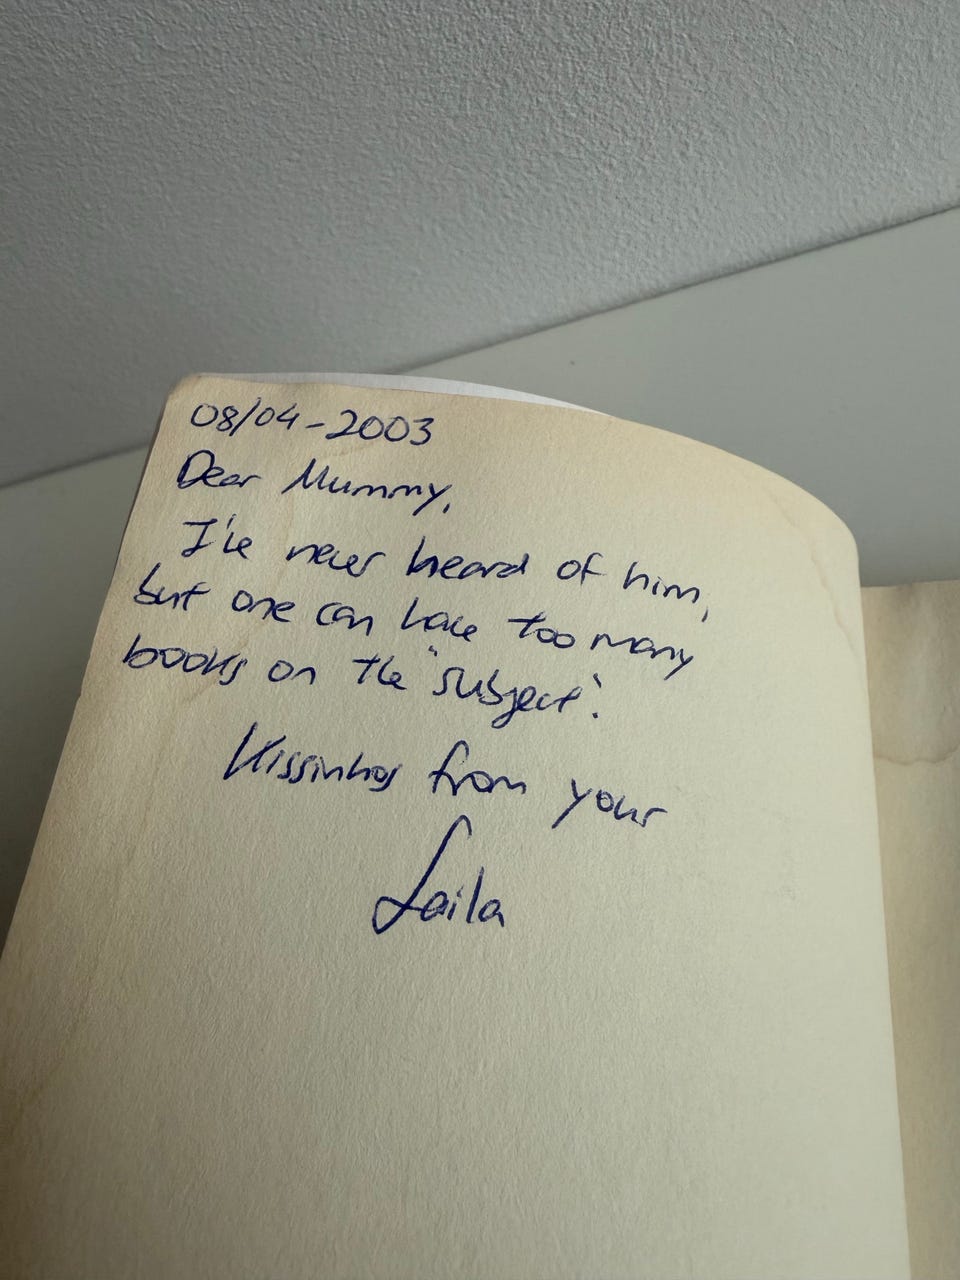 08/04-2003
Dear Mummy,
I've never heard of him,
but one can have too many
books on the "subject".
Kissinhos from your
Laila